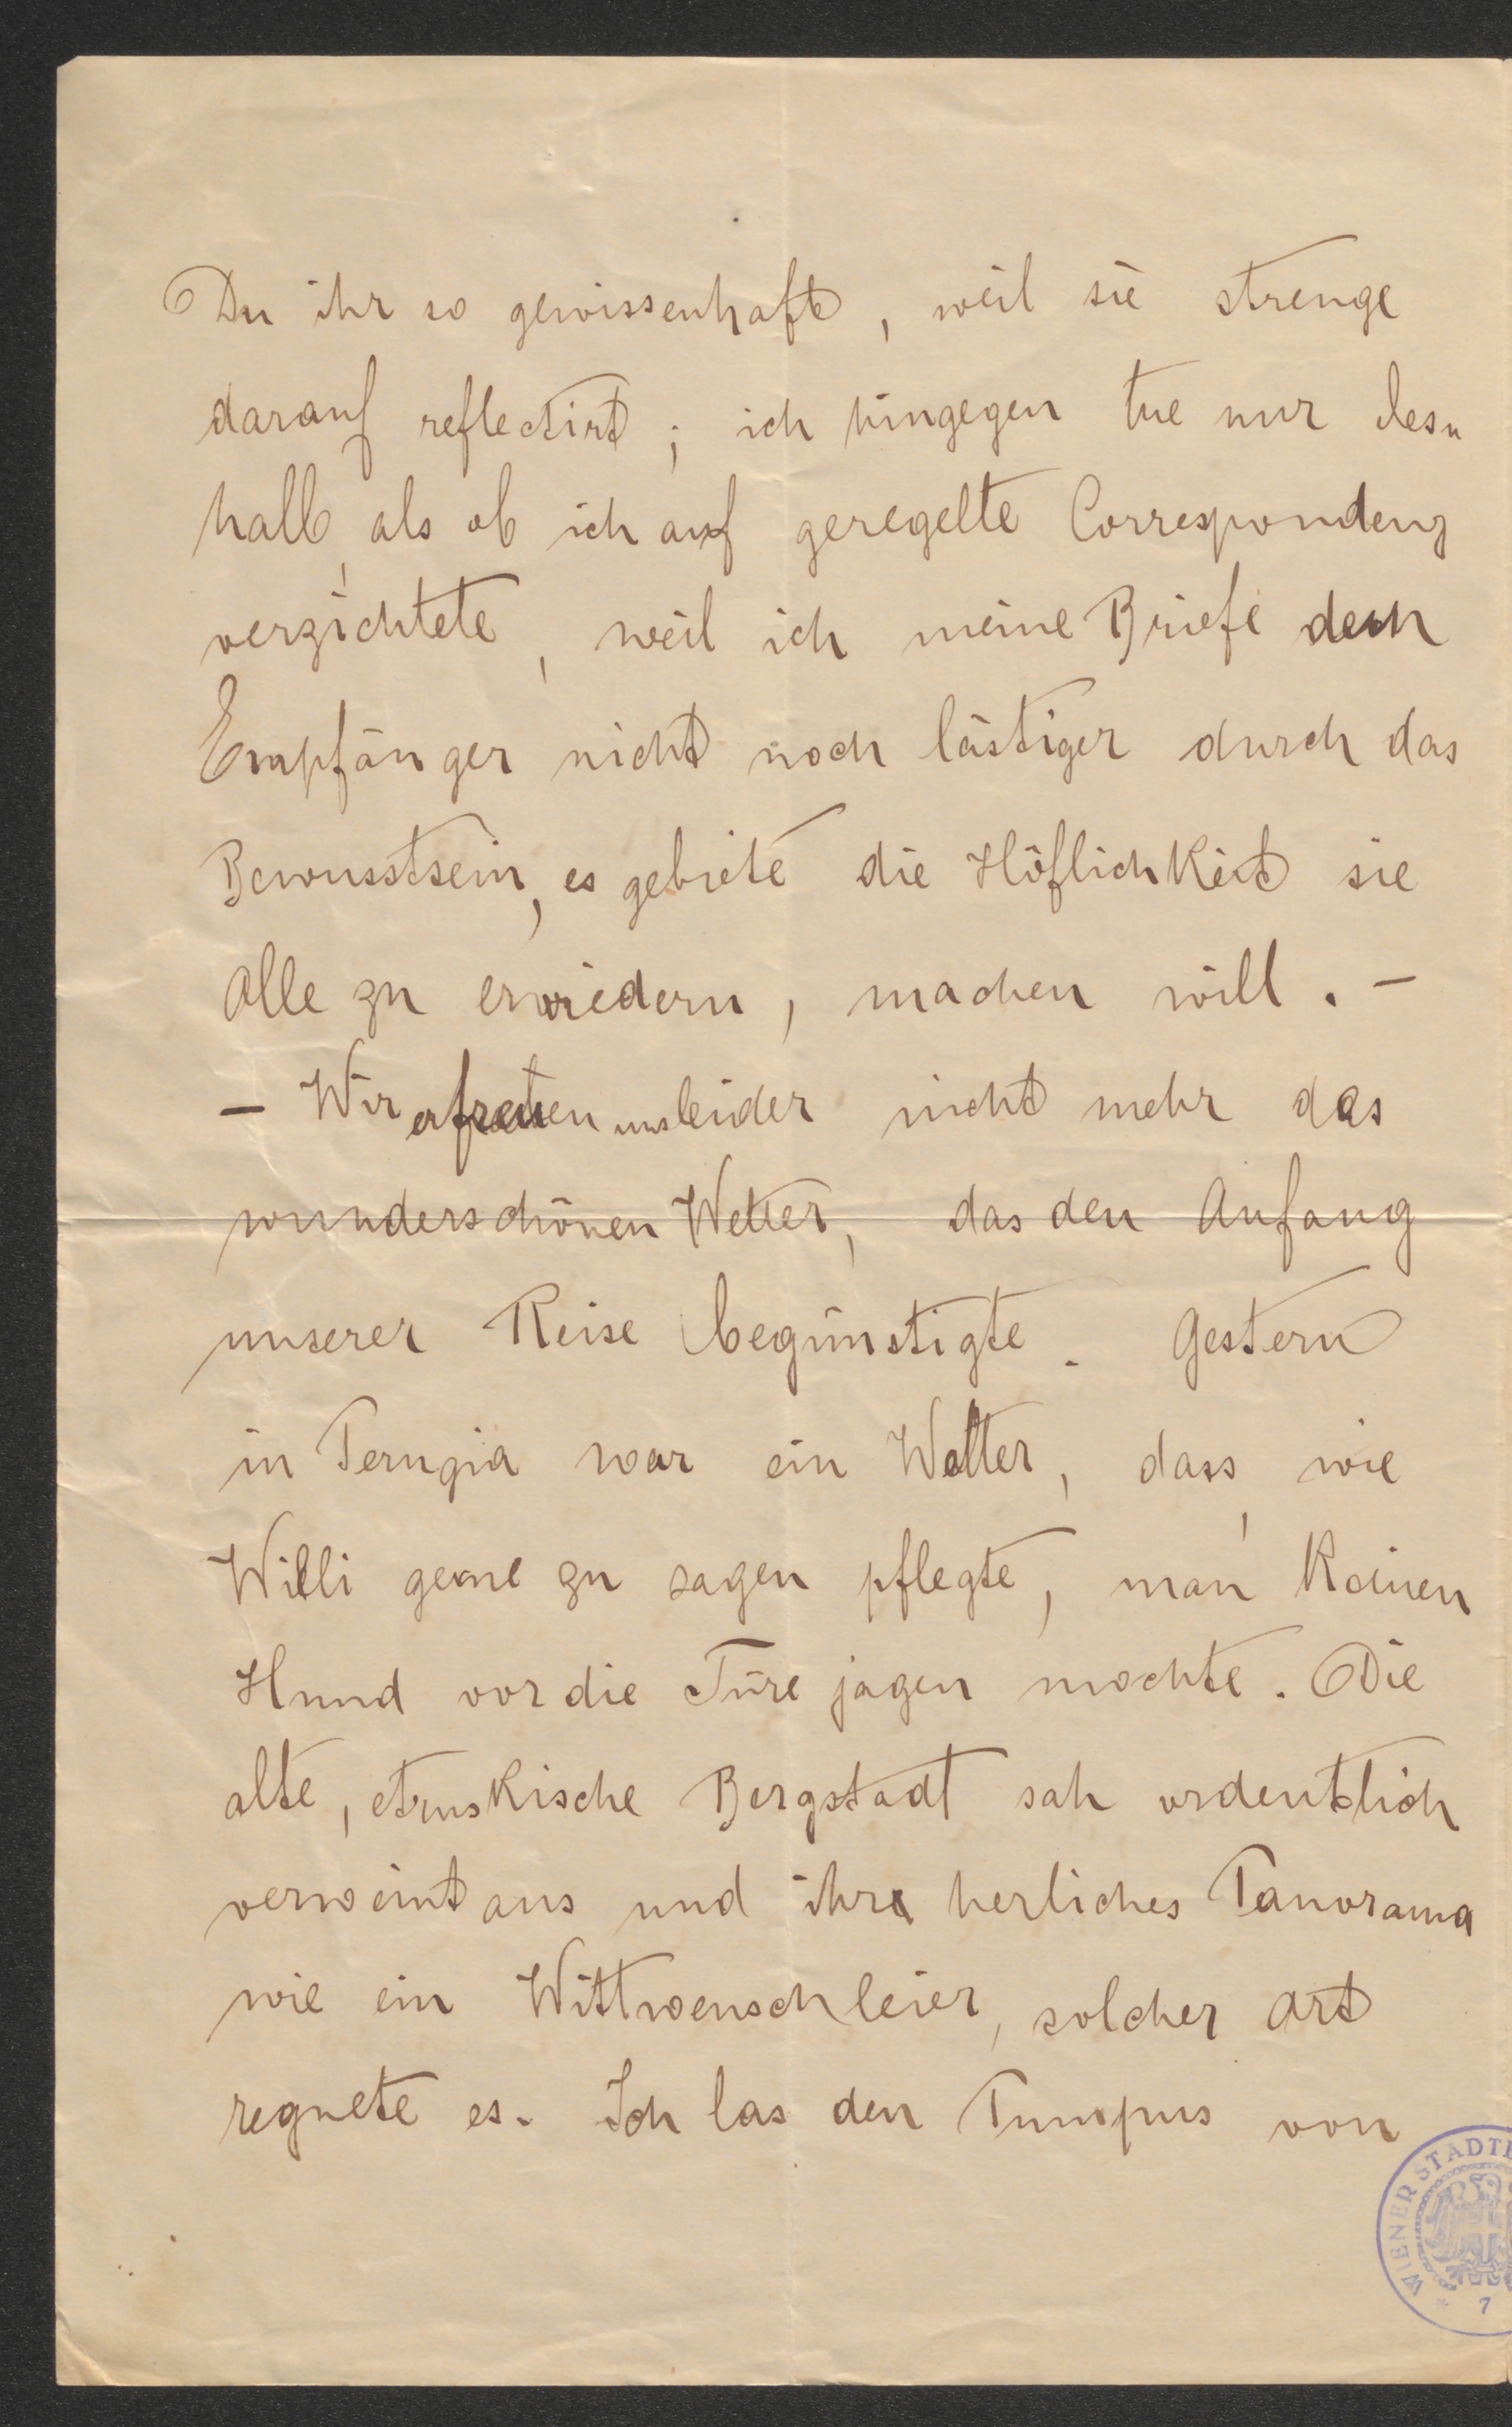 Du ihr so gewissenhaft, weil sie strenge
darauf reflectirt; ich hingegen tue nur des„
halb, als ob ich auf geregelte Correspondenz
verzichtete, weil ich meine Briefe dem
Empfänger nicht noch lästiger durch das
Bewusstsein, es gebiete die Höflichkeit sie
Alle zu erwiedern, machen will. –
– Wir erfreuen uns leider nicht mehr des
wunderschönen Wetter, das den Anfang
unserer Reise begünstigte. Gestern
in Perugia war ein Wetter, dass, wie
Willi gerne zu sagen pflegte, man keinen
Hund vor die Türe jagen mochte. Die
alte, etruskische Bergstadt sah ordentlich
verweint aus und ihr herliches Panorama
wie ein Wittwenschleier, solcher Art
regnete es. Ich las den von
WIENER STADT
* 7